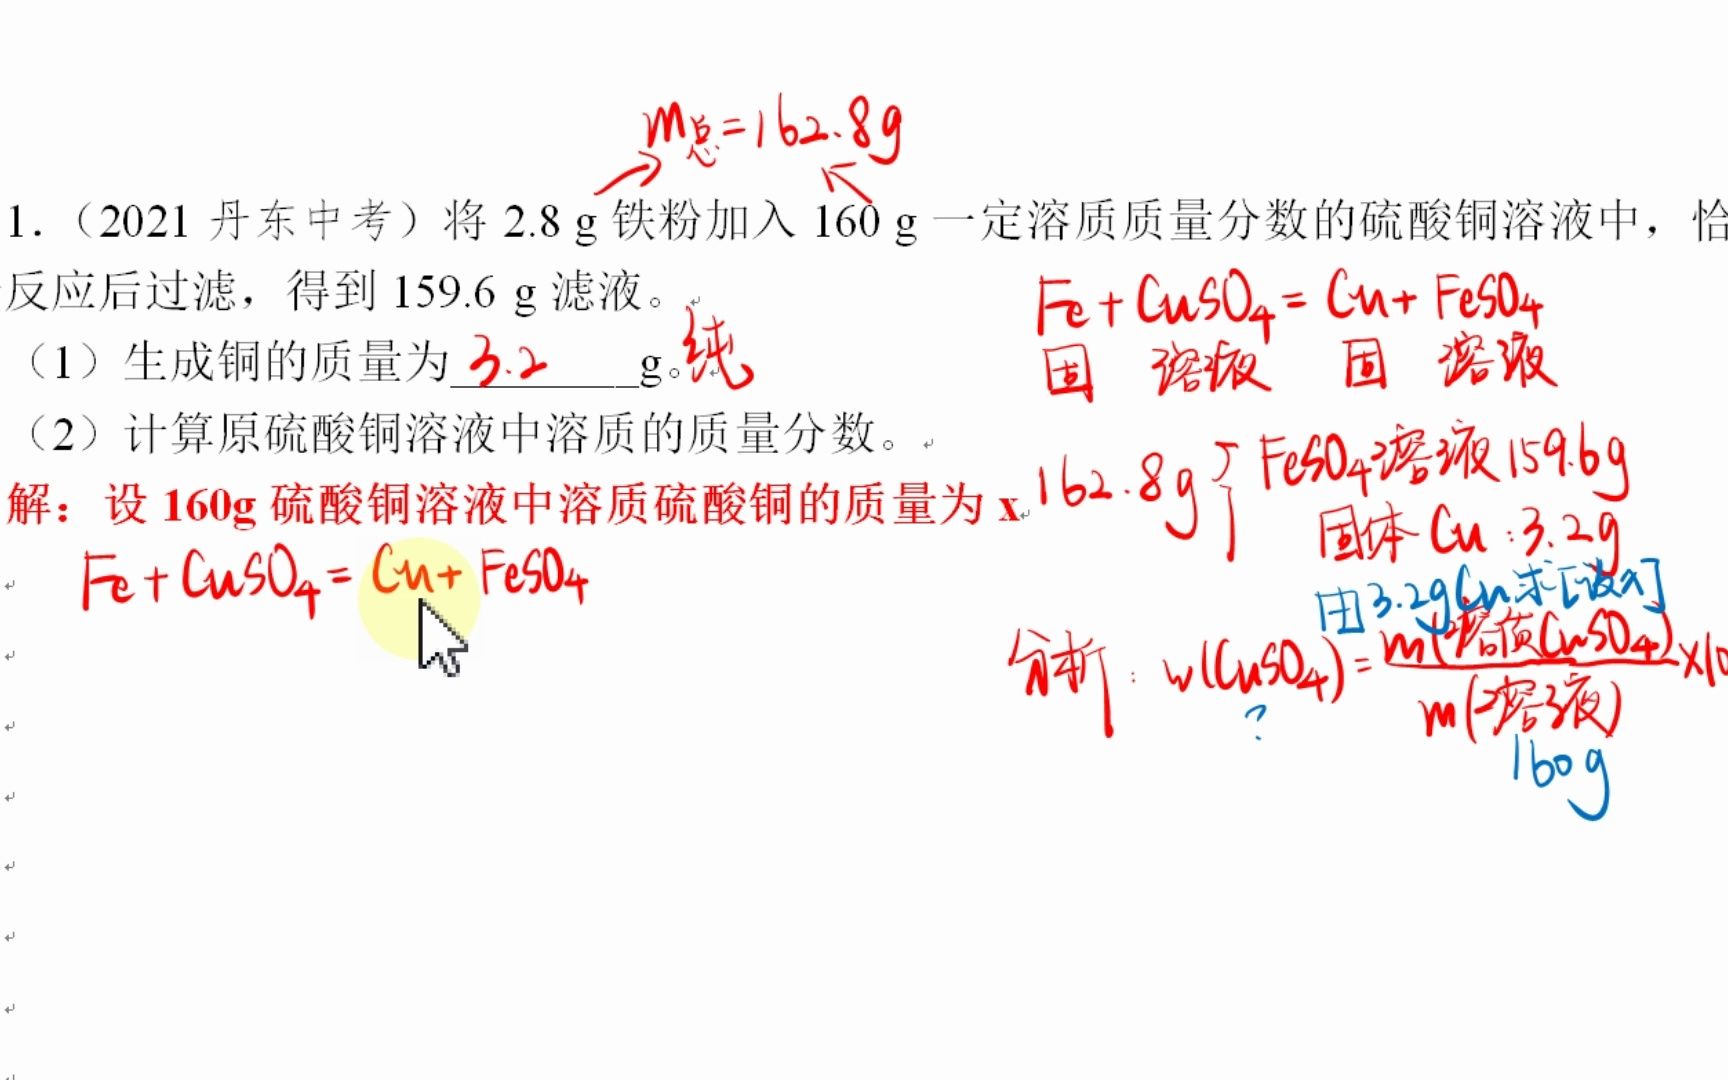 m总=162.8g
1.（2021 丹东中考）将 2.8 g 铁粉加入 160 g 一定溶质质量分数的硫酸铜溶液中，恰
反应后过滤，得到 159.6 g 滤液。
（1）生成铜的质量为 3.2 g。纯
（2）计算原硫酸铜溶液中溶质的质量分数。
解：设 160g 硫酸铜溶液中溶质硫酸铜的质量为 x
Fe+CuSO4=Cu+FeSO4
Fe+CuSO4=Cu+FeSO4
固 溶液 固 溶液
162.8g { FeSO4溶液159.6g
固体 Cu:3.2g
由3.2gCu求[设x]
分析: w(CuSO4)=m(溶质CuSO4)×10
m(溶液)
?
160g